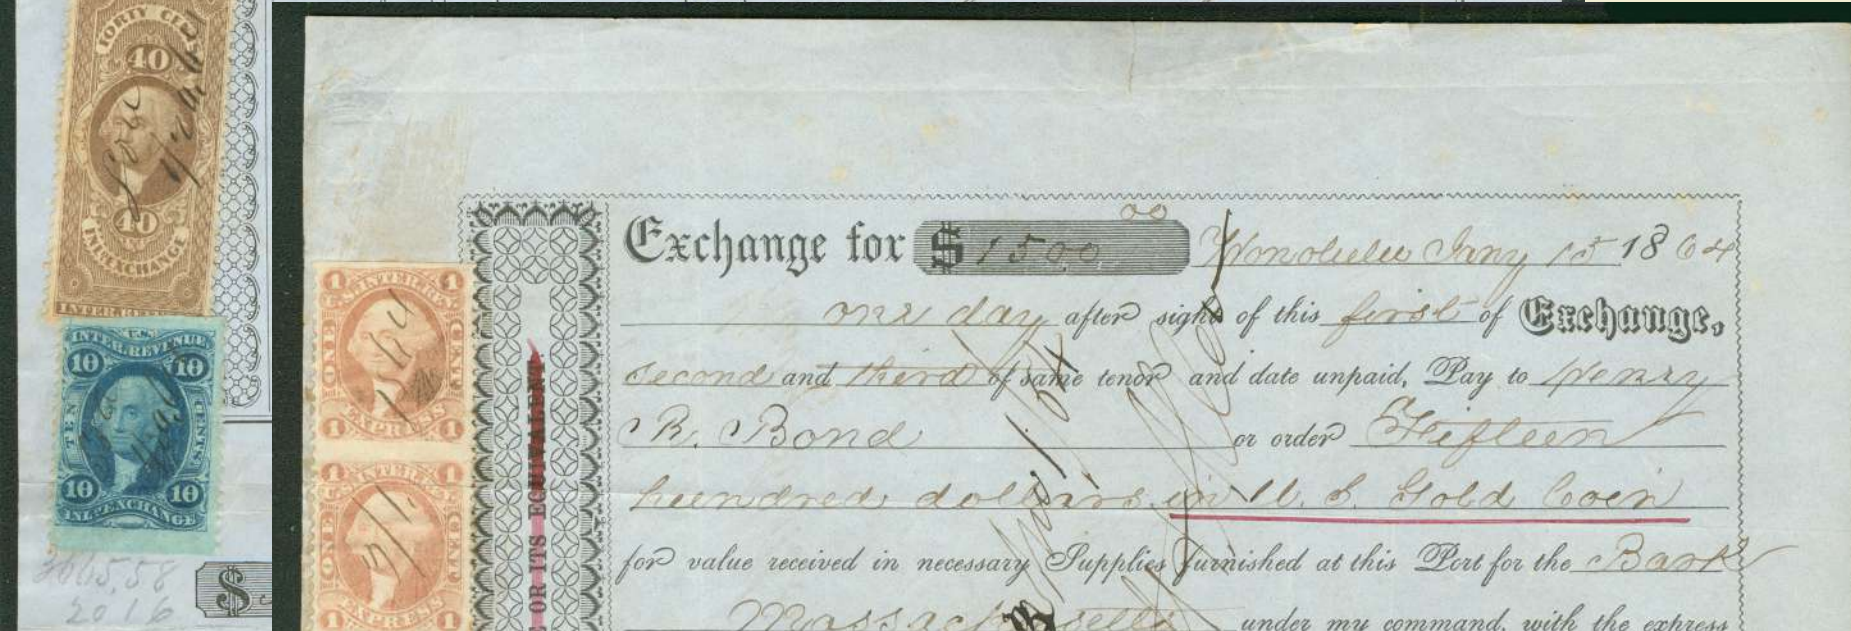 FORTY CENTS
40
40
INL. EXCHANGE
INTER. REV
U.S.
INTER. REVENUE
10 10
TEN CENTS
10 10
INL. EXCHANGE
3665.58
2016
$
1 U.S. INTER. REV. 1
ONE CENT
1864
1 EXPRESS 1
1 U.S. INTER. REV. 1
ONE CENT
3/1
1 EXPRESS 1
OR ITS EQUIVALENT
Exchange for $ 1500 00 Honolulu Jany 15 1864
one day after sight of this first of Exchange,
second and third of same tenor and date unpaid, Pay to Henry
R. Bond or order Fifteen
hundred dollars in U.S. Gold Coin
for value received in necessary Supplies furnished at this Port for the Bark
Massachusetts under my command, with the express